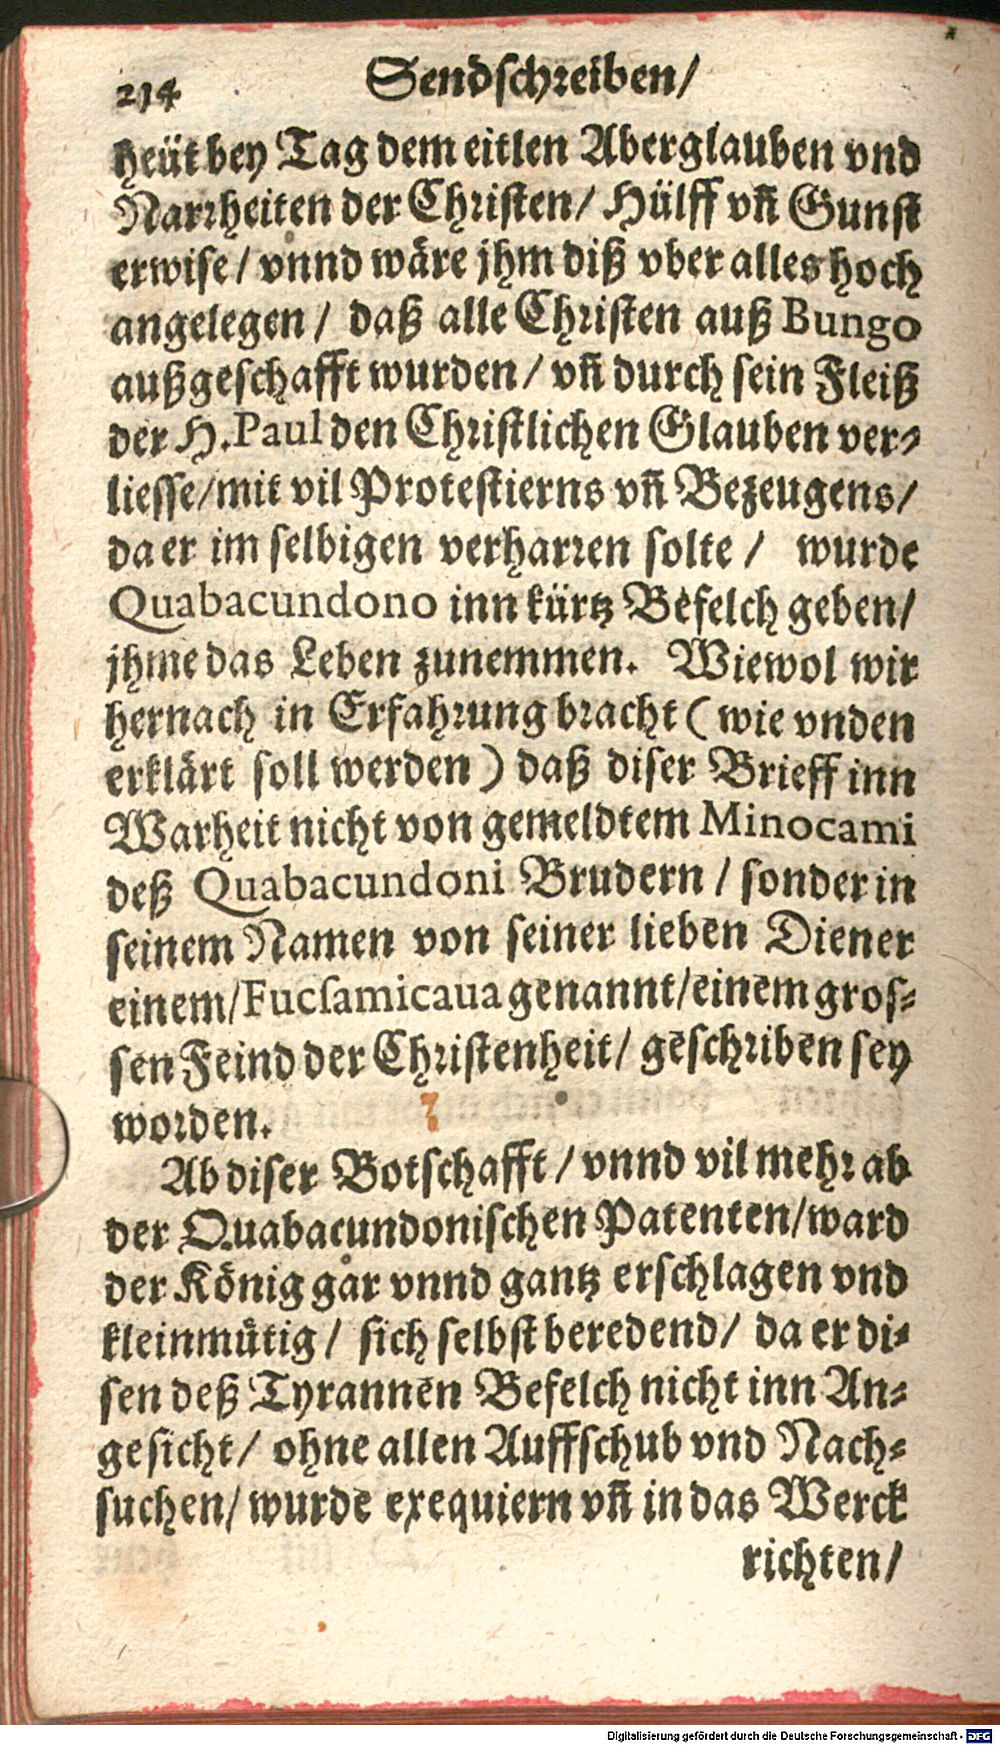 214 Sendschreiben/
heüt bey Tag dem eitlen Aberglauben vnd
Narrheiten der Christen/ Hülff vñ Gunst
erwise/ vnnd wäre jhm diß vber alles hoch
angelegen/ daß alle Christen auß Bungo
außgeschafft wurden/ vñ durch sein Fleiß
der H. Paul den Christlichen Glauben ver-
liesse/mit vil Protestierns vñ Bezeugens/
da er im selbigen verharren solte/ wurde
Quabacundono inn kürtz Befelch geben/
jhme das Leben zunemmen. Wiewol wir
hernach in Erfahrung bracht (wie vnden
erklärt soll werden) daß diser Brieff inn
Warheit nicht von gemeldtem Minocami
deß Quabacundoni Brudern/ sonder in
seinem Namen von seiner lieben Diener
einem/Fucsamicaua genannt/einem gros-
sen Feind der Christenheit/ geschriben sey
worden.
Ab diser Botschafft/ vnnd vil mehr ab
der Quabacundonischen Patenten/ward
der König gar vnnd gantz erschlagen vnd
kleinmütig/ sich selbst beredend/ da er di-
sen deß Tyrannen Befelch nicht inn An-
gesicht/ ohne allen Auffschub vnd Nach-
suchen/wurde exequiern vñ in das Werck
richten/
Digitalisierung gefördert durch die Deutsche Forschungsgemeinschaft - DFG